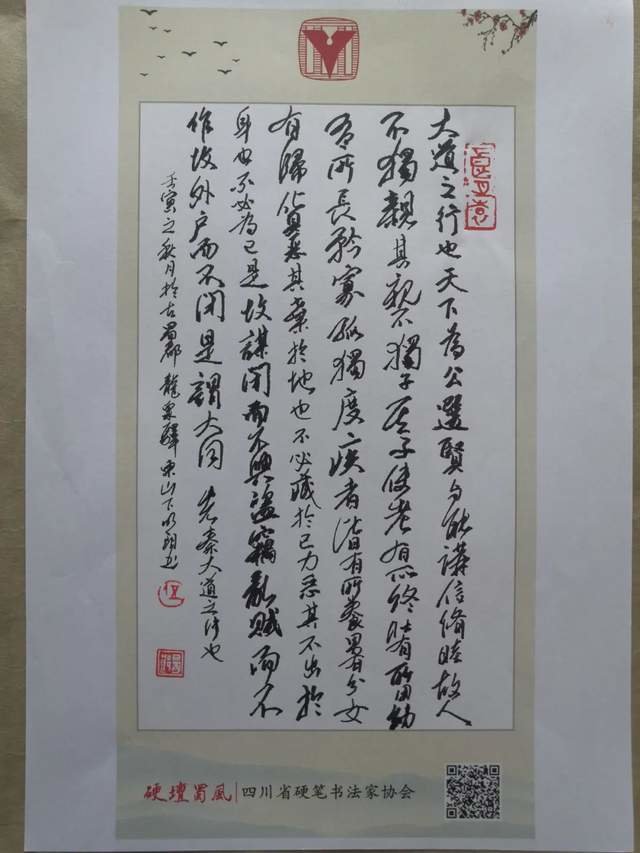 大道之行也天下為公選賢与能講信脩睦故人
不獨親其親不獨子其子使老有所終壯有所用幼
有所長矜寡孤獨廢疾者皆有所養男有分女
有歸貨惡其棄於地也不必藏於己力惡其不出於
身也不必為己是故謀閉而不興盜竊亂賊而不
作故外户而不閉是謂大同 先秦大道之行也
壬寅之秋月於古蜀郡龍泉驛東山下
硬壇蜀風 四川省硬笔书法家协会